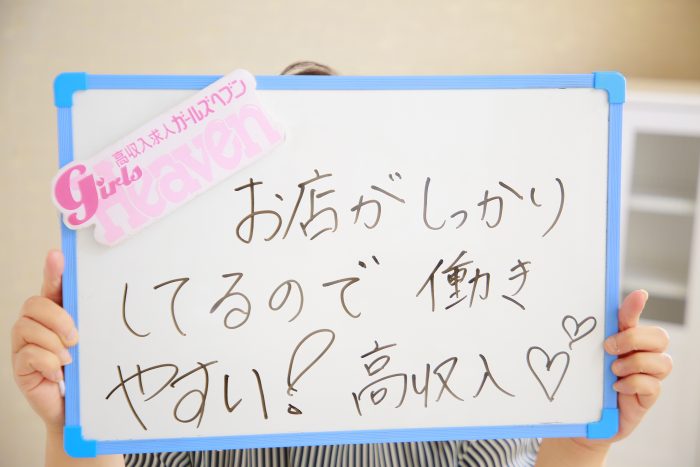 高収入求人ガールズヘブン
Girls Heaven
お店がしっかり
してるので 働き
やすい! 高収入♡♡